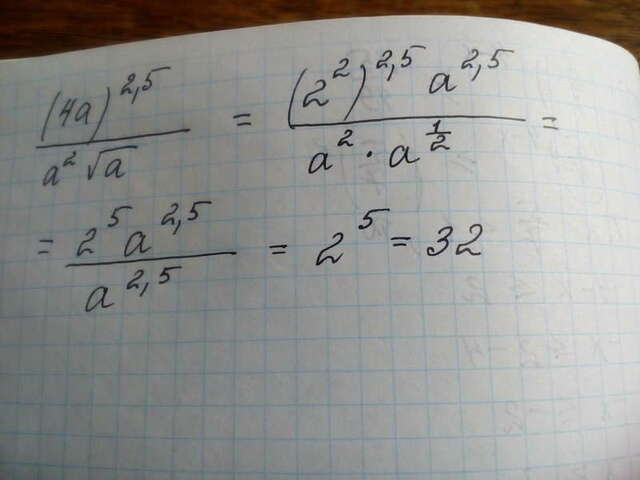 (4a)^2,5 / a^2 √a = (2^2)^2,5 a^2,5 / a^2 · a^1/2 =
= 2^5 a^2,5 / a^2,5 = 2^5 = 32